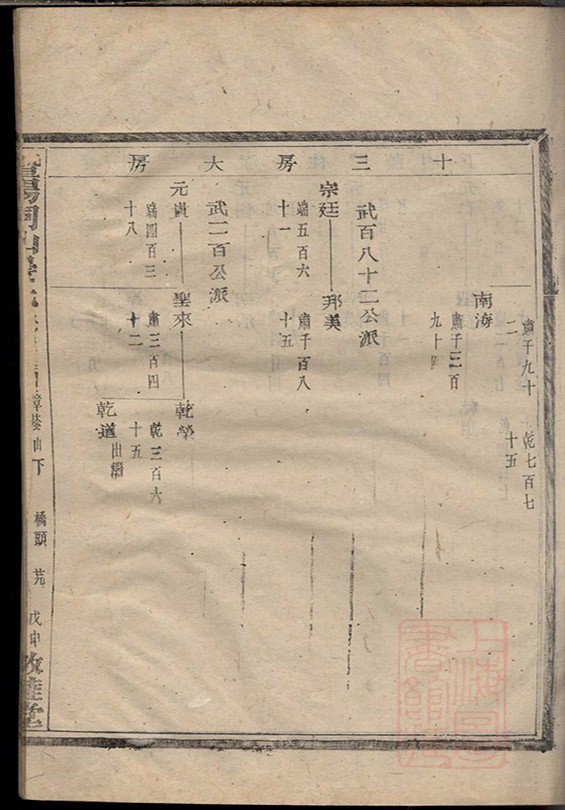 十三房大房
肅千九十二
乾七百七十五
南海
肅千三百九十四
武百八十二公派
宗廷
瑞五百六十一
邦美
肅千百八十五
武二百公派
元貴
瑞四百三十八
聖來
肅三百四十二
乾榮
乾三百六十五
乾道
出繼
下
橋頭
戊申
敦睦堂